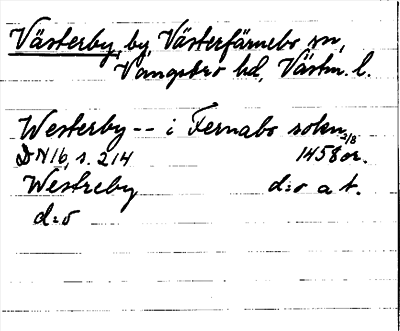 Västerby, by, Västerfärnebo sn,
Vangsbro hd, Västm. l.
Westerby -- i Fernabo sokn 2/8
DN 16, s. 214 1458 or.
Westreby d:o a t.
d:o